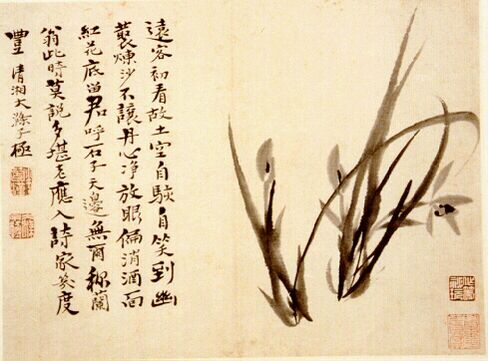 遠客初看故土空自驗自笑到幽
叢煉沙不讓丹心净放眼偏消酒面
紅花底留君呼石子天邊無爾称蘭
翁此時莫說多堪老應入詩家度
豐 清湘大滌子極